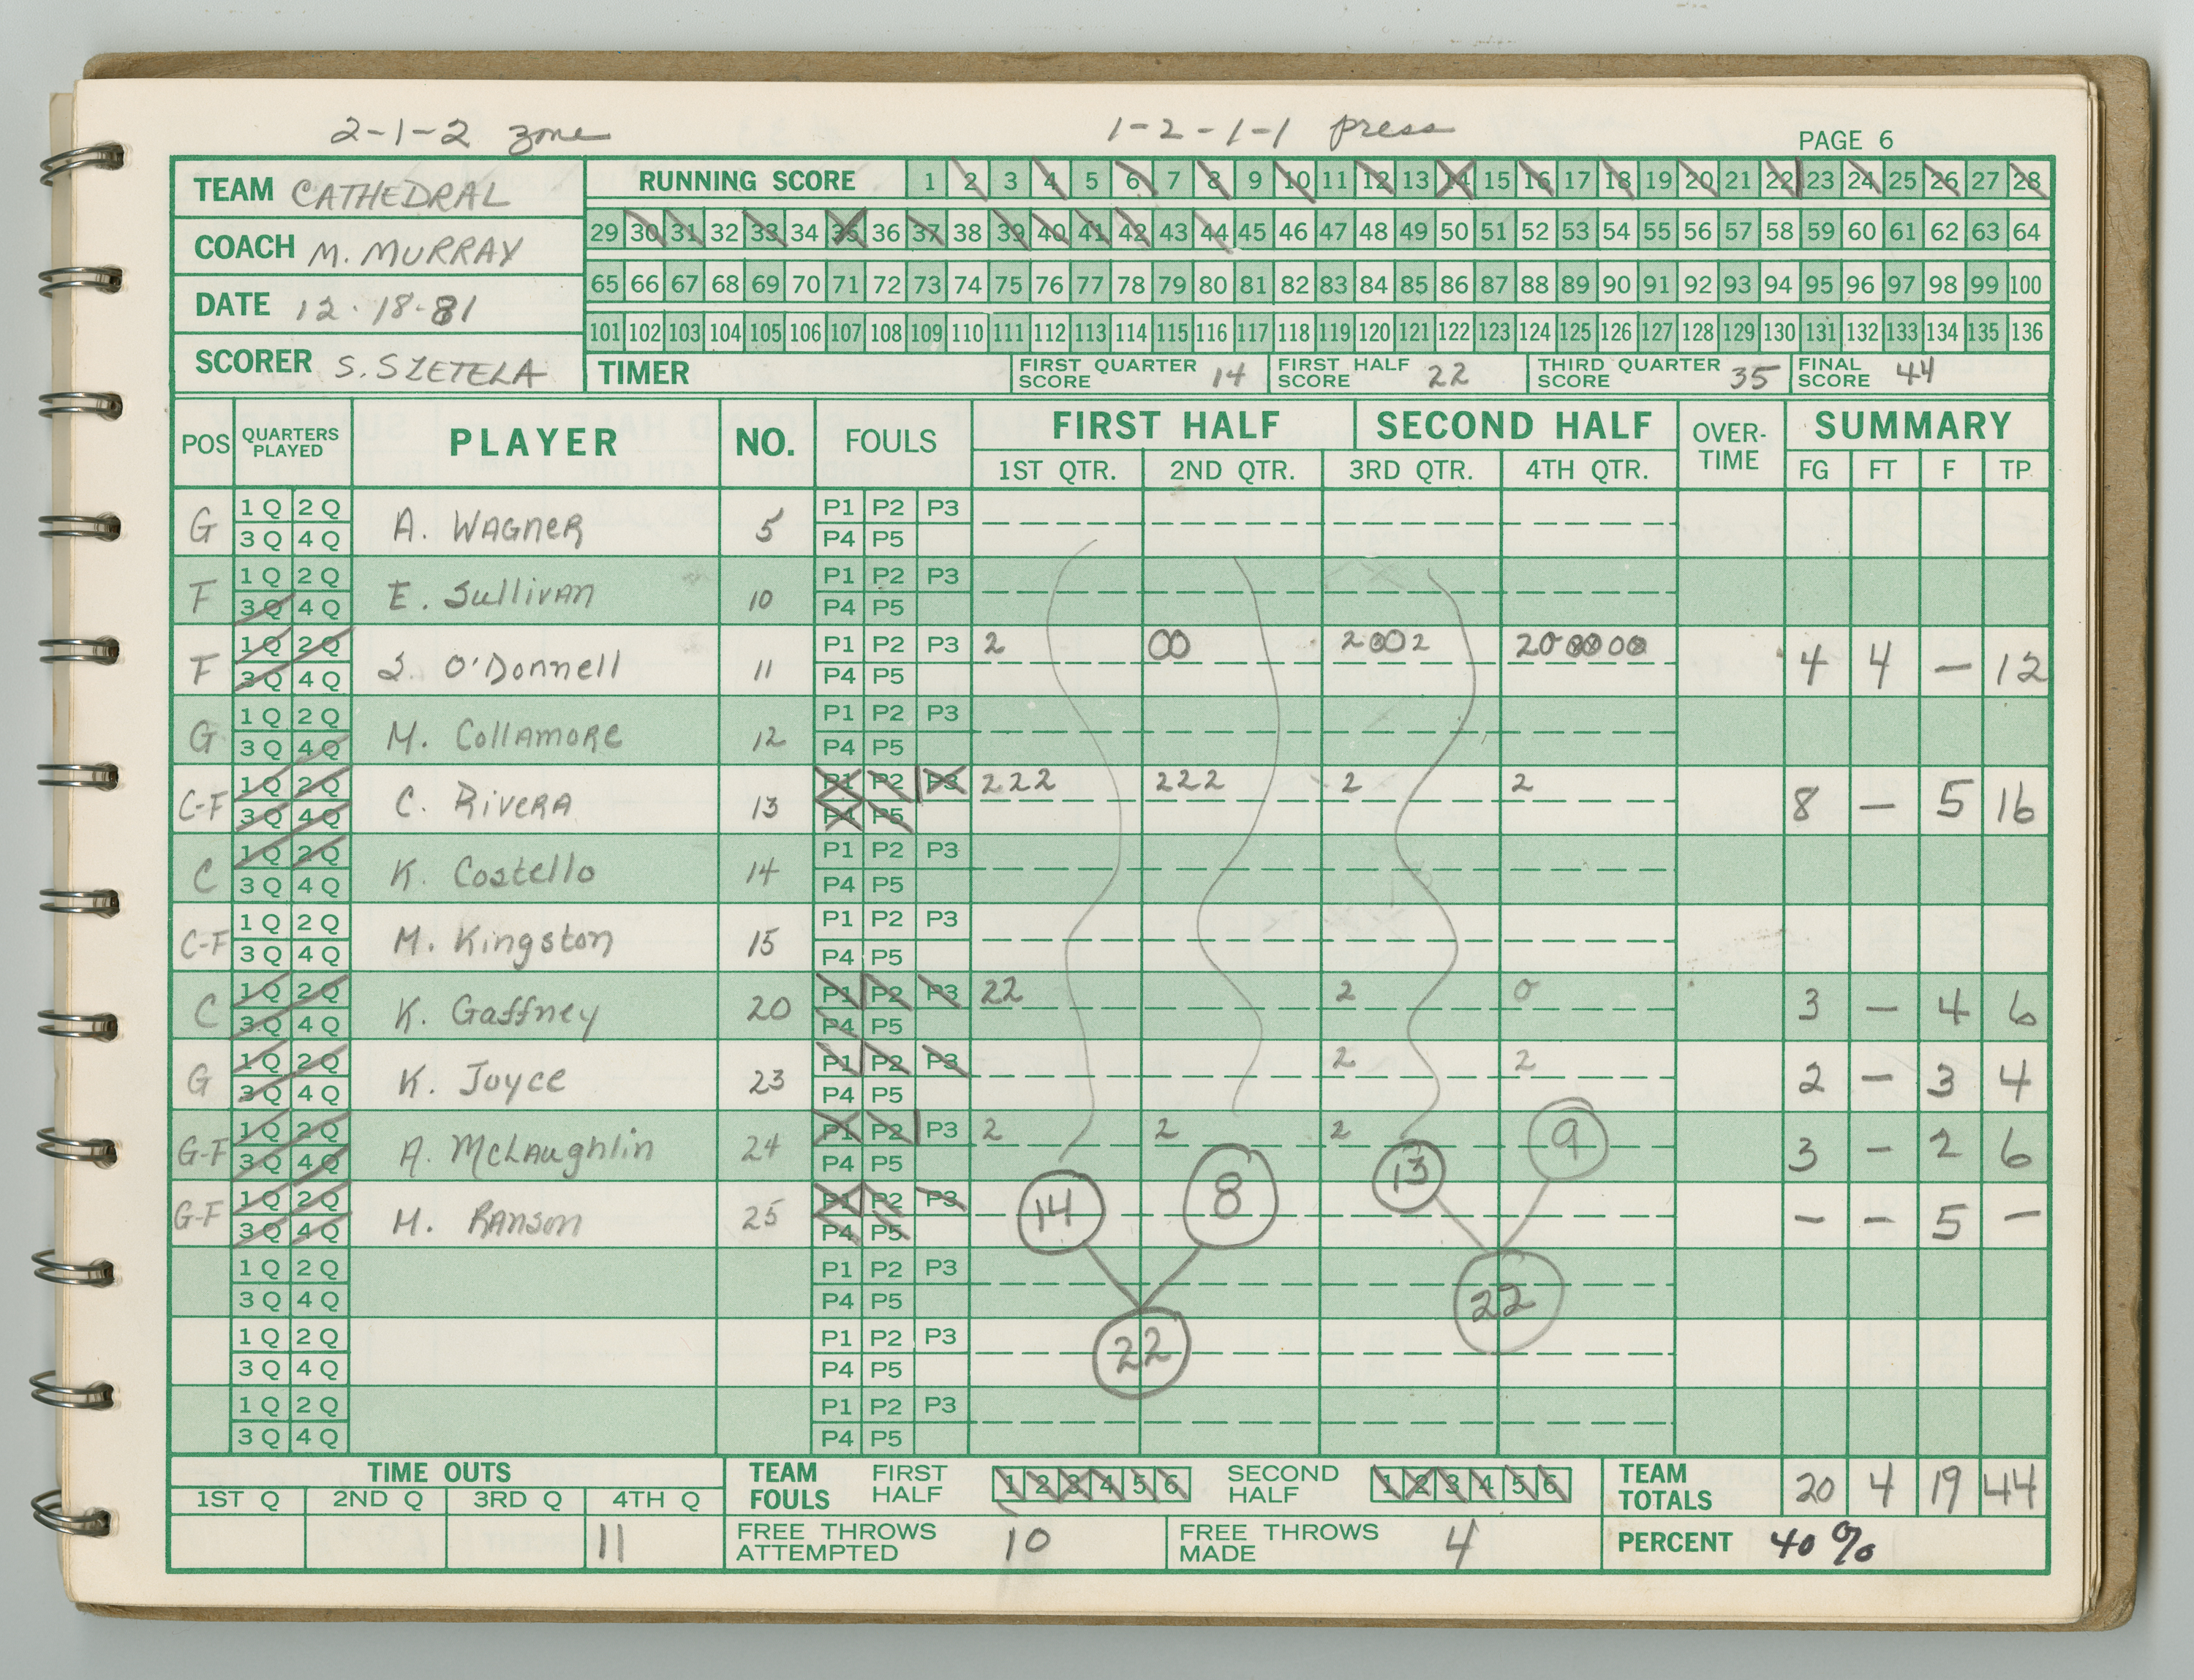 2-1-2 zone 1-2-1-1 press PAGE 6
TEAM CATHEDRAL
COACH M. MURRAY
DATE 12-18-81
SCORER S. SZETELA
RUNNING SCORE 1 2 3 4 5 6 7 8 9 10 11 12 13 14 15 16 17 18 19 20 21 22 23 24 25 26 27 28
29 30 31 32 33 34 35 36 37 38 39 40 41 42 43 44 45 46 47 48 49 50 51 52 53 54 55 56 57 58 59 60 61 62 63 64
65 66 67 68 69 70 71 72 73 74 75 76 77 78 79 80 81 82 83 84 85 86 87 88 89 90 91 92 93 94 95 96 97 98 99 100
101 102 103 104 105 106 107 108 109 110 111 112 113 114 115 116 117 118 119 120 121 122 123 124 125 126 127 128 129 130 131 132 133 134 135 136
TIMER FIRST QUARTER SCORE 14 FIRST HALF SCORE 22 THIRD QUARTER SCORE 35 FINAL SCORE 44
POS QUARTERS PLAYED PLAYER NO. FOULS FIRST HALF SECOND HALF OVER-TIME SUMMARY
1ST QTR. 2ND QTR. 3RD QTR. 4TH QTR. FG FT F TP
G 1Q 2Q A. WAGNER 5 P1 P2 P3
3Q 4Q P4 P5
F 1Q 2Q E. Sullivan 10 P1 P2 P3
3Q 4Q P4 P5
F 1Q 2Q S. O'Donnell 11 P1 P2 P3 2 00 2002 2000000 4 4 — 12
3Q 4Q P4 P5
G 1Q 2Q M. Collamore 12 P1 P2 P3
3Q 4Q P4 P5
C-F 1Q 2Q C. Rivera 13 P1 P2 P3 222 222 2 2 8 — 5 16
3Q 4Q P4 P5
C 1Q 2Q K. Costello 14 P1 P2 P3
3Q 4Q P4 P5
C-F 1Q 2Q M. Kingston 15 P1 P2 P3
3Q 4Q P4 P5
C 1Q 2Q K. Gaffney 20 P1 P2 P3 22 2 0 3 — 4 6
3Q 4Q P4 P5
G 1Q 2Q K. Joyce 23 P1 P2 P3 2 2 2 — 3 4
3Q 4Q P4 P5
G-F 1Q 2Q A. McLaughlin 24 P1 P2 P3 2 2 2 3 — 2 6
3Q 4Q P4 P5
G-F 1Q 2Q M. Ranson 25 P1 P2 P3 14 8 13 9 — — 5 —
3Q 4Q P4 P5
1Q 2Q P1 P2 P3 22
3Q 4Q P4 P5
1Q 2Q P1 P2 P3 22
3Q 4Q P4 P5
1Q 2Q P1 P2 P3
3Q 4Q P4 P5
TIME OUTS TEAM FOULS FIRST HALF 1 2 3 4 5 6 SECOND HALF 1 2 3 4 5 6 TEAM TOTALS 20 4 19 44
1ST Q 2ND Q 3RD Q 4TH Q
11 FREE THROWS ATTEMPTED 10 FREE THROWS MADE 4 PERCENT 40%